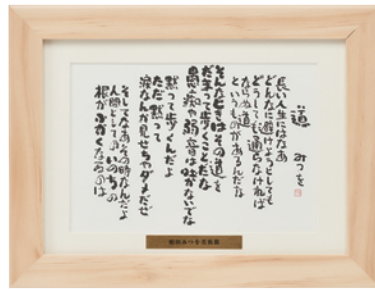 道
みつを
長い人生にはなあ
どんなに避けようとしても
どうしても通らなければ
ならぬ道
というものがあるんだな
そんなときはその道を
だまって歩くことだな
愚痴や弱音は吐かないでな
黙って歩くんだよ
ただ黙って
涙なんか見せちゃダメだぜ
そしてなあその時なんだよ
人間としてのいのちの
根がふかくなるのは
相田みつを美術館